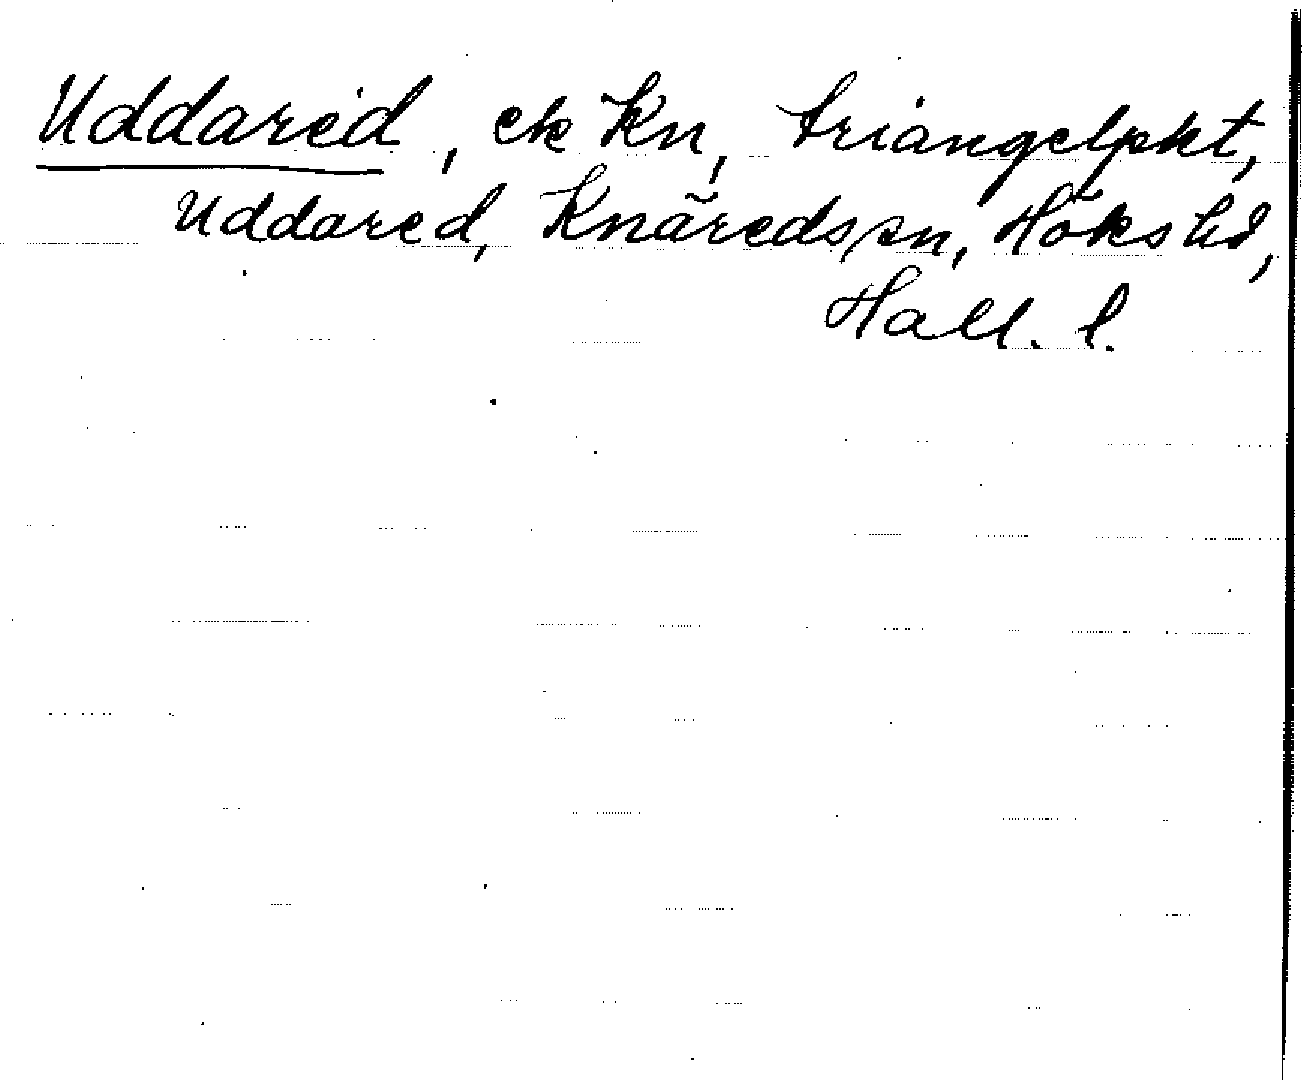 Uddared, ek Kn, triangelpkt,
Uddared, Knäreds sn, Höks hd,
Hall. l.